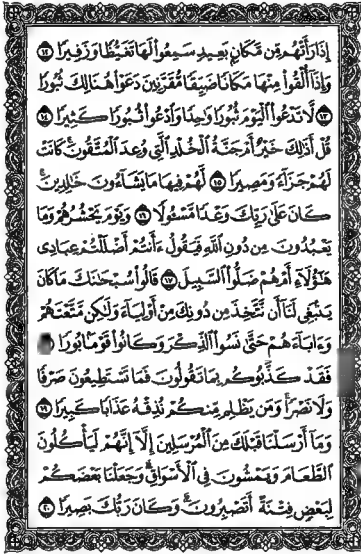 إِذَا رَأَتْهُم مِّن مَّكَانٍ بَعِيدٍ سَمِعُوا۟ لَهَا تَغَيُّظًا وَزَفِيرًا ١٢
وَإِذَآ أُلْقُوا۟ مِنْهَا مَكَانًا ضَيِّقًا مُّقَرَّنِينَ دَعَوْا۟ هُنَالِكَ ثُبُورًا
١٣ لَّا تَدْعُوا۟ ٱلْيَوْمَ ثُبُورًا وَٰحِدًا وَٱدْعُوا۟ ثُبُورًا كَثِيرًا ١٤
قُلْ أَذَٰلِكَ خَيْرٌ أَمْ جَنَّةُ ٱلْخُلْدِ ٱلَّتِى وُعِدَ ٱلْمُتَّقُونَ ۚ كَانَتْ
لَهُمْ جَزَآءً وَمَصِيرًا ١٥ لَّهُمْ فِيهَا مَا يَشَآءُونَ خَٰلِدِينَ ۚ
كَانَ عَلَىٰ رَبِّكَ وَعْدًا مَّسْـُٔولًا ١٦ وَيَوْمَ يَحْشُرُهُمْ وَمَا
يَعْبُدُونَ مِن دُونِ ٱللَّهِ فَيَقُولُ ءَأَنتُمْ أَضْلَلْتُمْ عِبَادِى
هَٰٓؤُلَآءِ أَمْ هُمْ ضَلُّوا۟ ٱلسَّبِيلَ ١٧ قَالُوا۟ سُبْحَٰنَكَ مَا كَانَ
يَنۢبَغِى لَنَآ أَن نَّتَّخِذَ مِن دُونِكَ مِنْ أَوْلِيَآءَ وَلَٰكِن مَّتَّعْتَهُمْ
وَءَابَآءَهُمْ حَتَّىٰ نَسُوا۟ ٱلذِّكْرَ وَكَانُوا۟ قَوْمًۢا بُورًا
فَقَدْ كَذَّبُوكُم بِمَا تَقُولُونَ فَمَا تَسْتَطِيعُونَ صَرْفًا
وَلَا نَصْرًا ۚ وَمَن يَظْلِم مِّنكُمْ نُذِقْهُ عَذَابًا كَبِيرًا ١٩
وَمَآ أَرْسَلْنَا قَبْلَكَ مِنَ ٱلْمُرْسَلِينَ إِلَّآ إِنَّهُمْ لَيَأْكُلُونَ
ٱلطَّعَامَ وَيَمْشُونَ فِى ٱلْأَسْوَاقِ ۗ وَجَعَلْنَا بَعْضَكُمْ
لِبَعْضٍ فِتْنَةً أَتَصْبِرُونَ ۗ وَكَانَ رَبُّكَ بَصِيرًا ٢٠